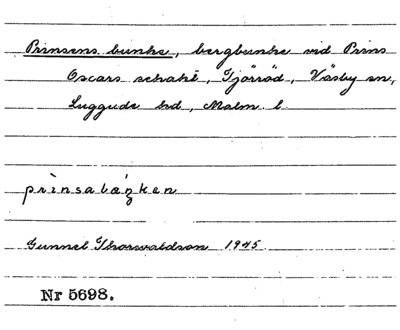 Prinsens bunke, bergbunke vid Prins
Oscars schakt, Tjörröd, Väsby sn,
Luggude hd, Malm. l.
prinsabaŋken
Gunnel Thorwaldson 1945.
Nr 5698.